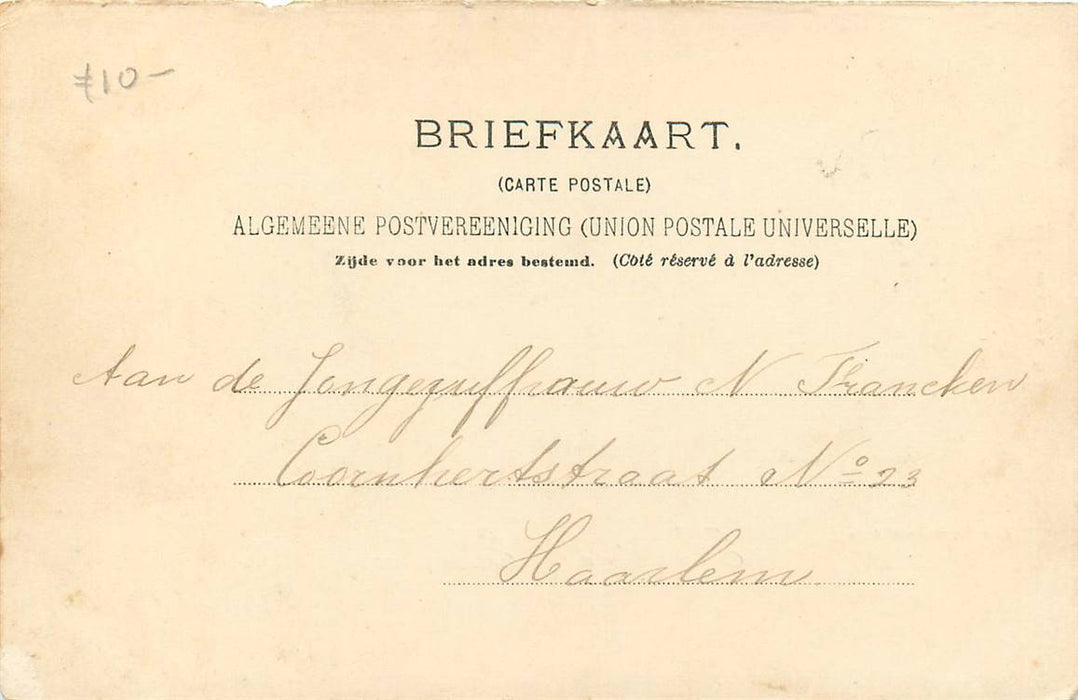 ƒ10-
BRIEFKAART.
(CARTE POSTALE)
ALGEMEENE POSTVEREENIGING (UNION POSTALE UNIVERSELLE)
Zijde voor het adres bestemd. (Côté réservé à l'adresse)
Aan de Jongejuffrouw N Francken
Coornhertstraat No 23
Haarlem